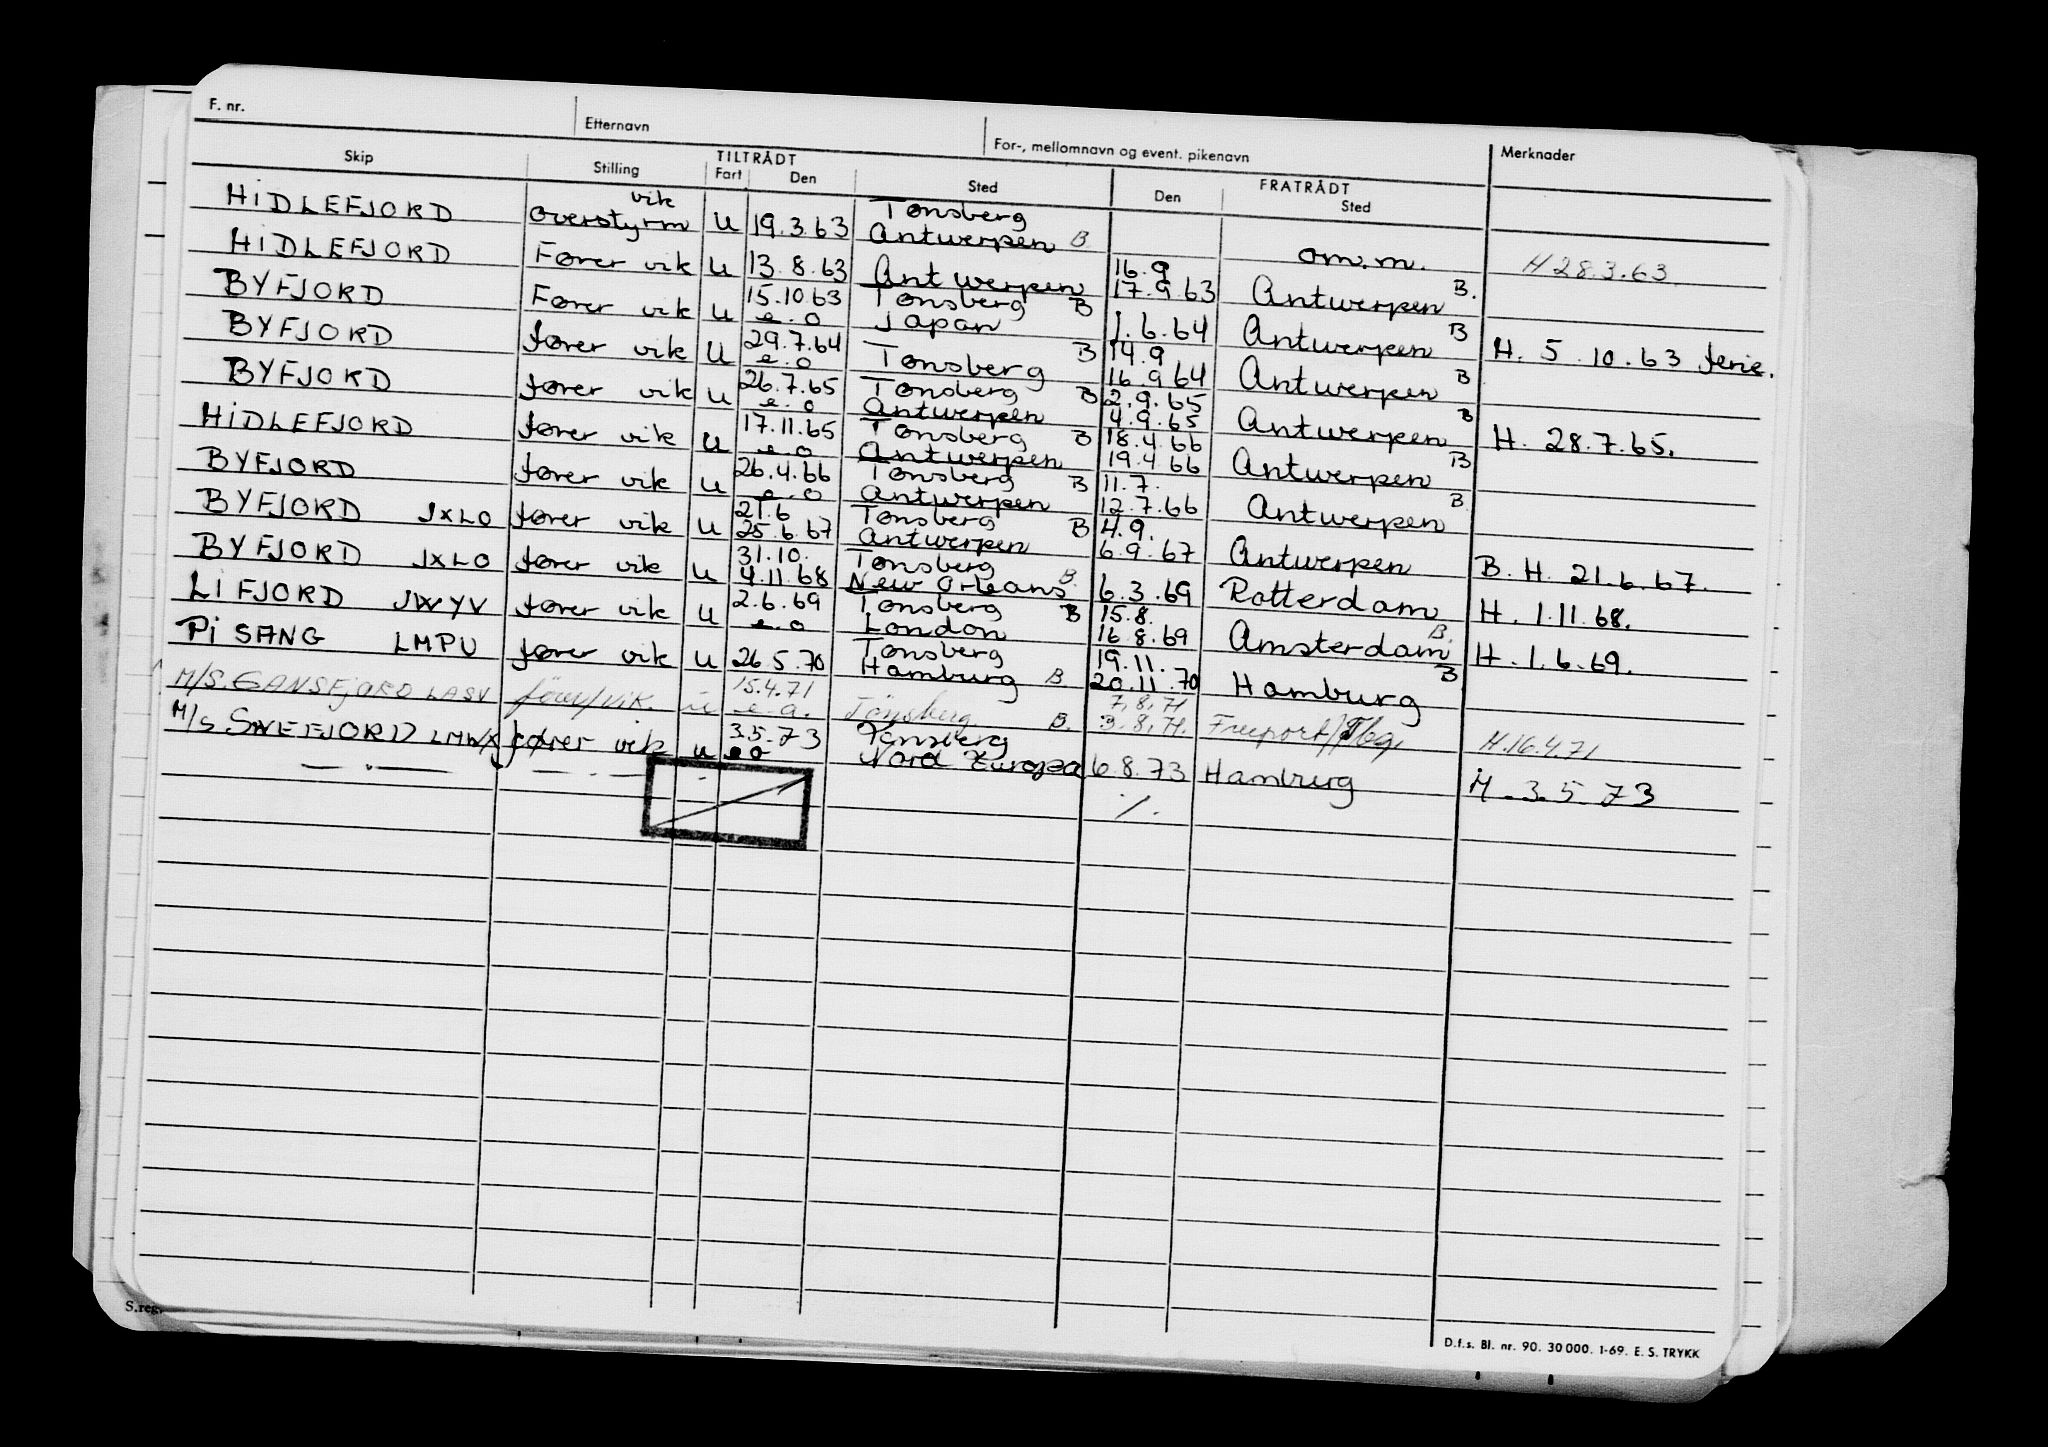 F. nr. Etternavn For-, mellomnavn og event. pikenavn Merknader
Skip Stilling TILTRÅDT Fart Den Sted FRATRÅDT Den Sted
HIDLEFJORD vik overstyrm u 19.3.63 Tønsberg Antwerpen B om.m. H 28.3.63
HIDLEFJORD Fører vik u 13.8.63 Antwerpen 16.9 17.9 63 Antwerpen B.
BYFJORD Fører vik u 15.10.63 e.o Tønsberg Japan B 1.6.64 Antwerpen B H. 5.10.63 ferie.
BYFJORD fører vik u 29.7.64 e.o Tønsberg B 14.9 16.9 64 Antwerpen B
BYFJORD fører vik u 26.7.65 e.o Tønsberg Antwerpen B 2.9.65 4.9.65 Antwerpen B H. 28.7.65.
HIDLEFJORD fører vik u 17.11.65 e.o Tønsberg Antwerpen B 18.4.66 19.4 66 Antwerpen B
BYFJORD fører vik u 26.4.66 e.o Tønsberg Antwerpen B 11.7. 12.7.66 Antwerpen B
BYFJORD JXLO fører vik u 21.6 25.6.67 Tønsberg Antwerpen B 4.9. 6.9.67 Antwerpen B. H. 21.6.67.
BYFJORD JXLO fører vik u 31.10. 4.11.68 Tønsberg New Orleans B. 6.3.69 Rotterdam H. 1.11.68.
LIFJORD JWYV fører vik u 2.6.69 e.o Tønsberg London B 15.8. 16.8.69 Amsterdam B. H. 1.6.69.
PISANG LMPU fører vik u 26.5.70 Tønsberg Hamburg B 19.11. 20.11.70 Hamburg B
M/S. GANSFJORD LASV fører/vik. u 15.4.71 e.o. Tønsberg B. 7.8.71 3.8.71. Freeport/Tbg. H.16.4.71
M/S fører vik u 3.5.73 eo Tønsberg Nord Europa 6.8.73 Hamburg H. 3.5.73
— . — — . — ./.
S.reg.
D.f.s. Bl. nr. 90. 30 000. 1-69. E. S. TRYKK